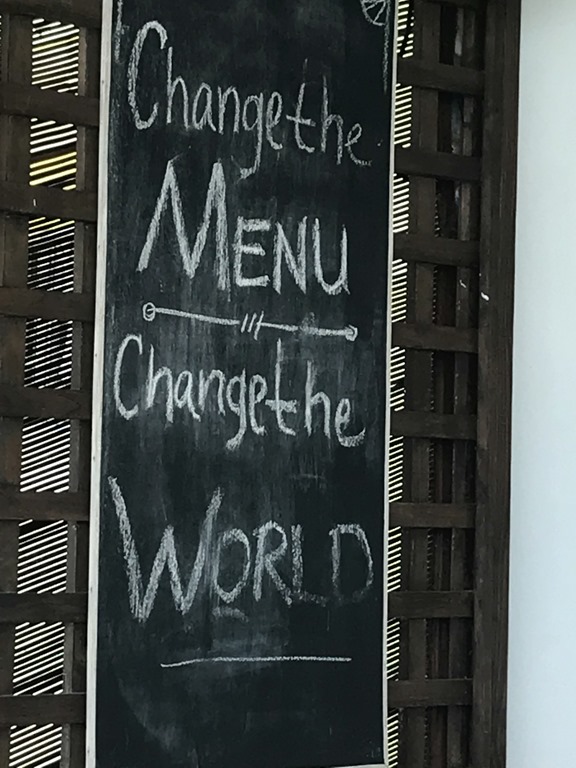 Change the
MENU
Change the
WORLD